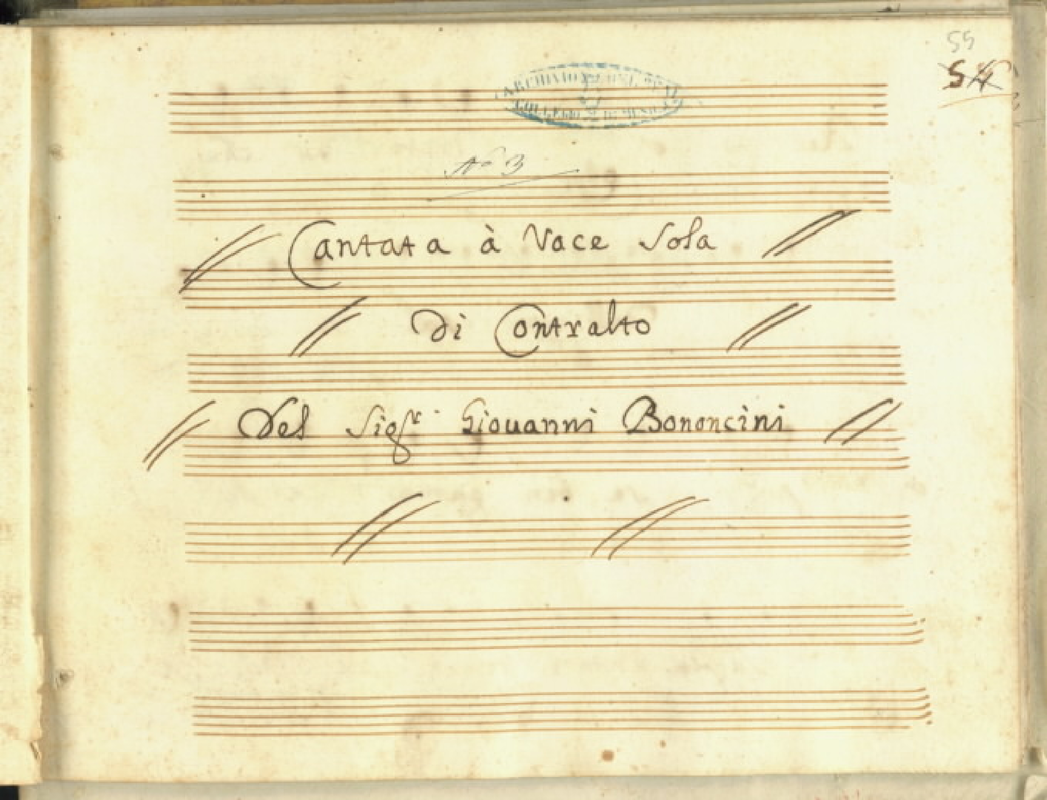 55
54
ARCHIVIO DEL REAL
COLLEGIO DI MUSICA
N.o 3
Cantata à Voce Sola
Di Contralto
Del Sig.r Giovanni Bononcini